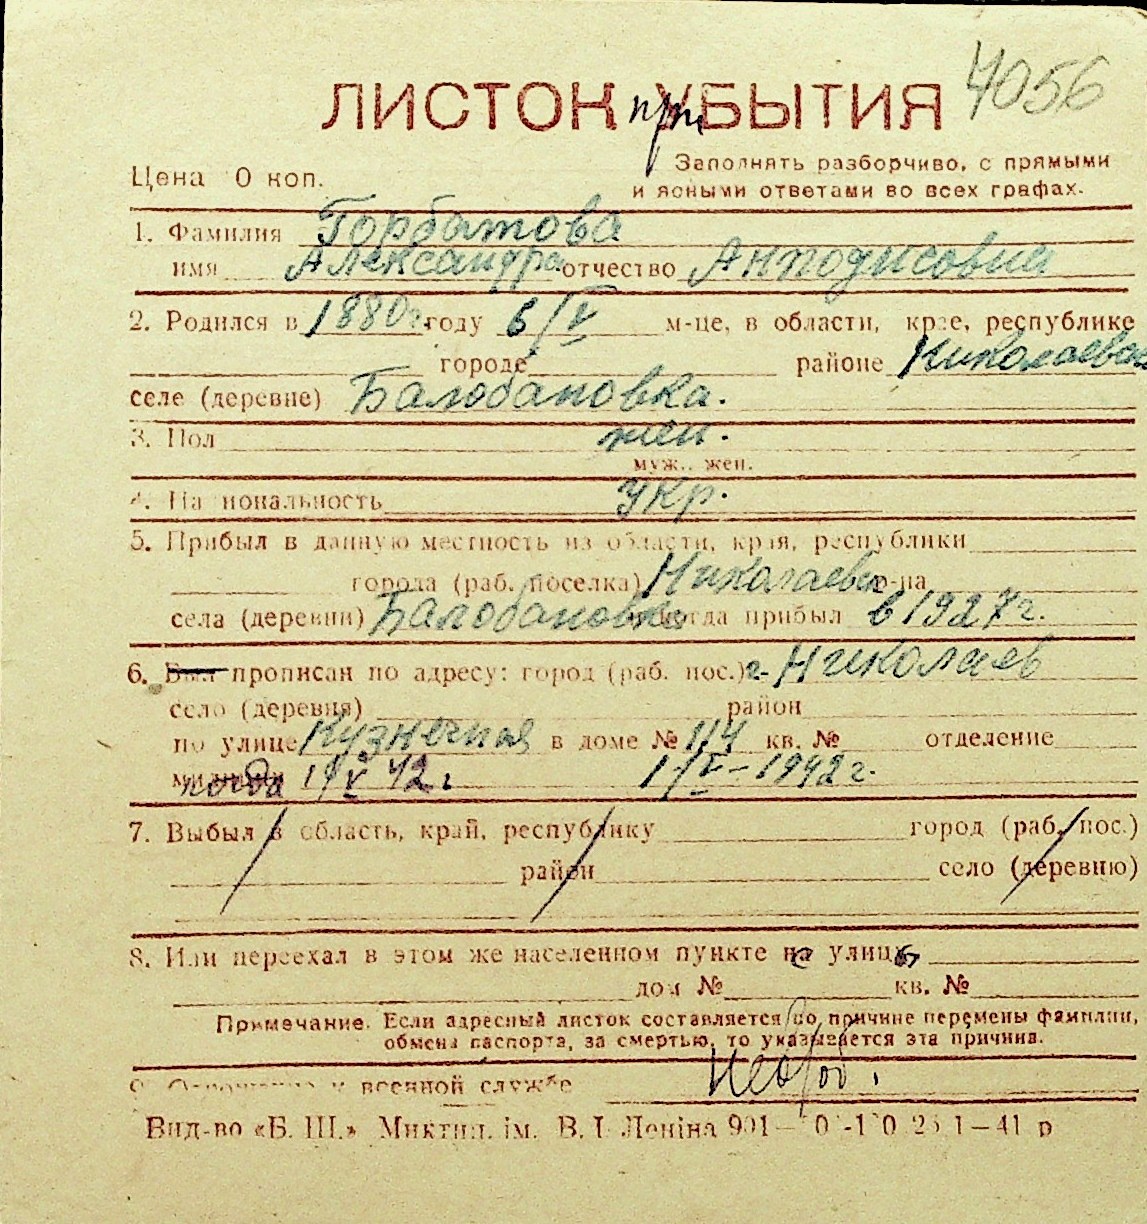 4056
ЛИСТОК при УБЫТИЯ
Заполнять разборчиво, с прямыми
Цена 0 коп. и ясными ответами во всех графах.
1. Фамилия Горбатова
имя Александра отчество Анподисовна
2. Родился в 1880г. году 6/V м-це, в области, крае, республике
городе районе Николаевс
селе (деревне) Балобановка.
3. Пол жен.
муж., жен.
4. На иональность Укр.
5. Прибыл в данную местность из области, края, республики
города (раб. поселка) Николаевск р-на
села (деревни) Балобановка когда прибыл в 1927 г.
6. Был прописан по адресу: город (раб. пос.) г. Николаев
село (деревня) район
по улице Кузнечная в доме № 114 кв. № отделение
милиции когда 19/V 42 г 1/V-1942 г.
7. Выбыл в область, край, республику город (раб. пос.)
район село (деревню)
8. Или переехал в этом же населенном пункте на улицу
дом № кв. №
Примечание. Если адресный листок составляется по причине перемены фамилии,
обмена паспорта, за смертью, то указывается эта причина.
9. к военной службе необ.
Вид-во «Б. Ш.» Миктип. ім. В. І. Леніна 901 1—41 р